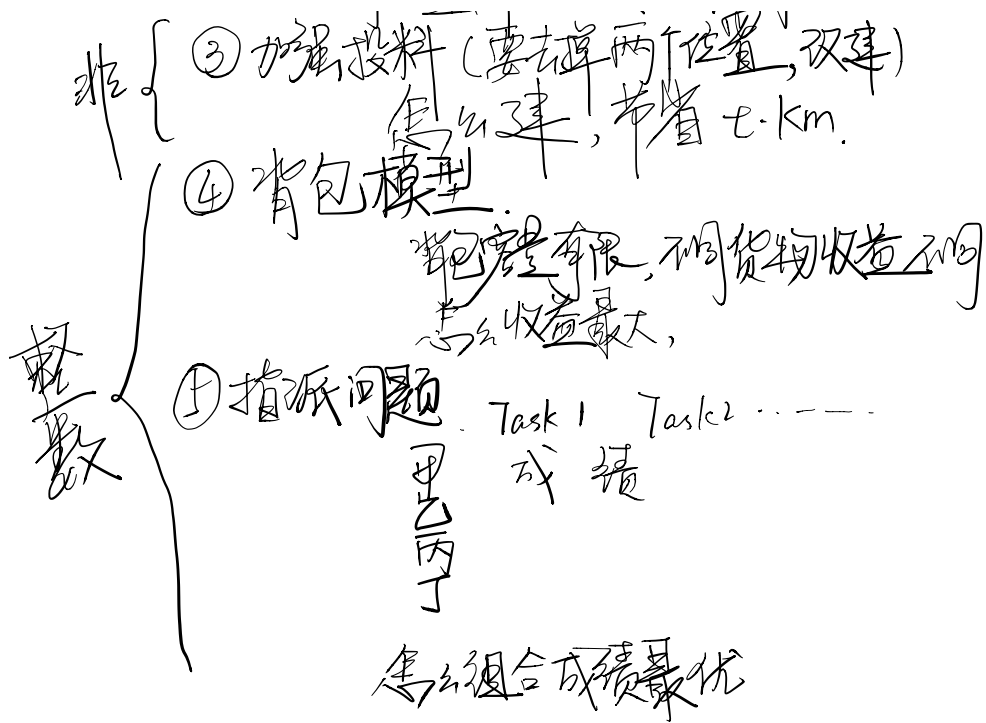 非
③ 加强投料(要去掉两个位置,改建)
怎么建,节省 t·km.
④ 背包模型.
背包容量有限,不同货物收益不同
怎么收益最大,
整数
⑤ 指派问题. Task 1 Task2 ······
甲 成绩
乙
丙
丁
怎么组合成绩最优